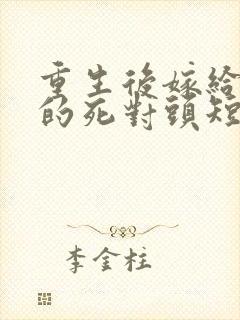 重生後嫁給
的死對頭短
李金柱